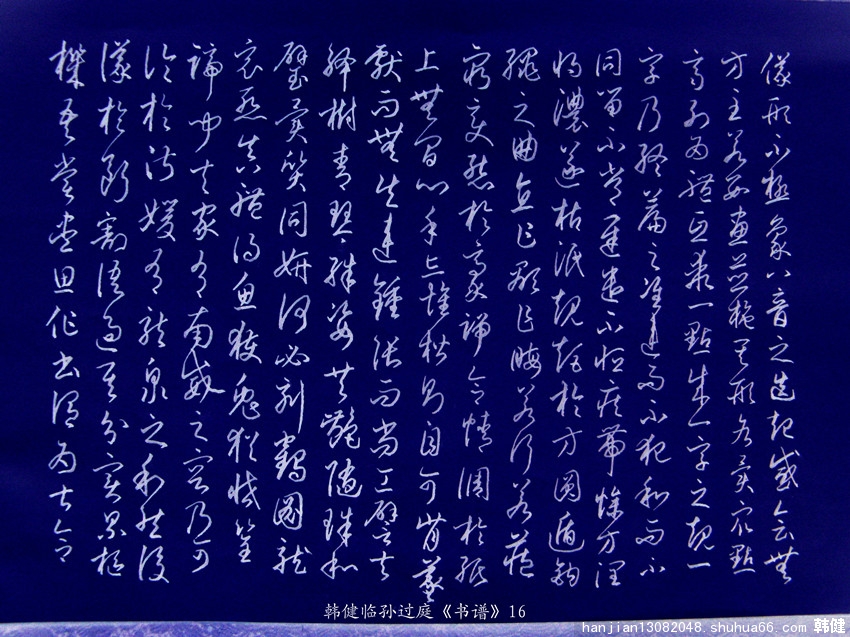 儀形不極象八音之迭起感會無
方至若數畫並施其形各異衆點
齊列為體互乖一點成一字之規一
字乃終篇之准違而不犯和而不
同留不常遲遣不恒疾帶燥方潤
將濃遂枯泯規矩於方圓遁鉤
繩之曲直乍顯乍晦若行若藏
窮變態於豪端合情調於紙
上無間心手忘懷楷則自可背羲
獻而無失違鍾張而尚工譬夫
絳樹青琴殊姿共豔隨珠和
璧異質同妍何必刻鶴圖龍
竟慚真體得魚獲兔猶恡筌
蹄聞夫家有南威之容乃可
論於淑媛有龍泉之利然後
議於斷割語過其分實累樞
機吾嘗盡思作書謂為甚合
韩健临孙过庭《书谱》16
hanjian13082048.shuhua66.com 韩健